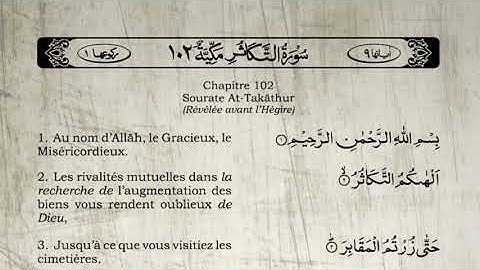 اٰياتها ٩ سُوْرَةُ التَّكَاثُرِ مَكِّيَّةٌ ١٠٢ ركوعها ١
Chapitre 102
Sourate At-Takāthur
(Révélée avant l'Hégire)
1. Au nom d'Allāh, le Gracieux, le
Miséricordieux.
بِسْمِ اللّٰهِ الرَّحْمٰنِ الرَّحِيْمِ ١
2. Les rivalités mutuelles dans la
recherche de l'augmentation des
biens vous rendent oublieux de
Dieu,
اَلْهٰىكُمُ التَّكَاثُرُ ٢
3. Jusqu'à ce que vous visitiez les
cimetières,
حَتّٰى زُرْتُمُ الْمَقَابِرَ ٣